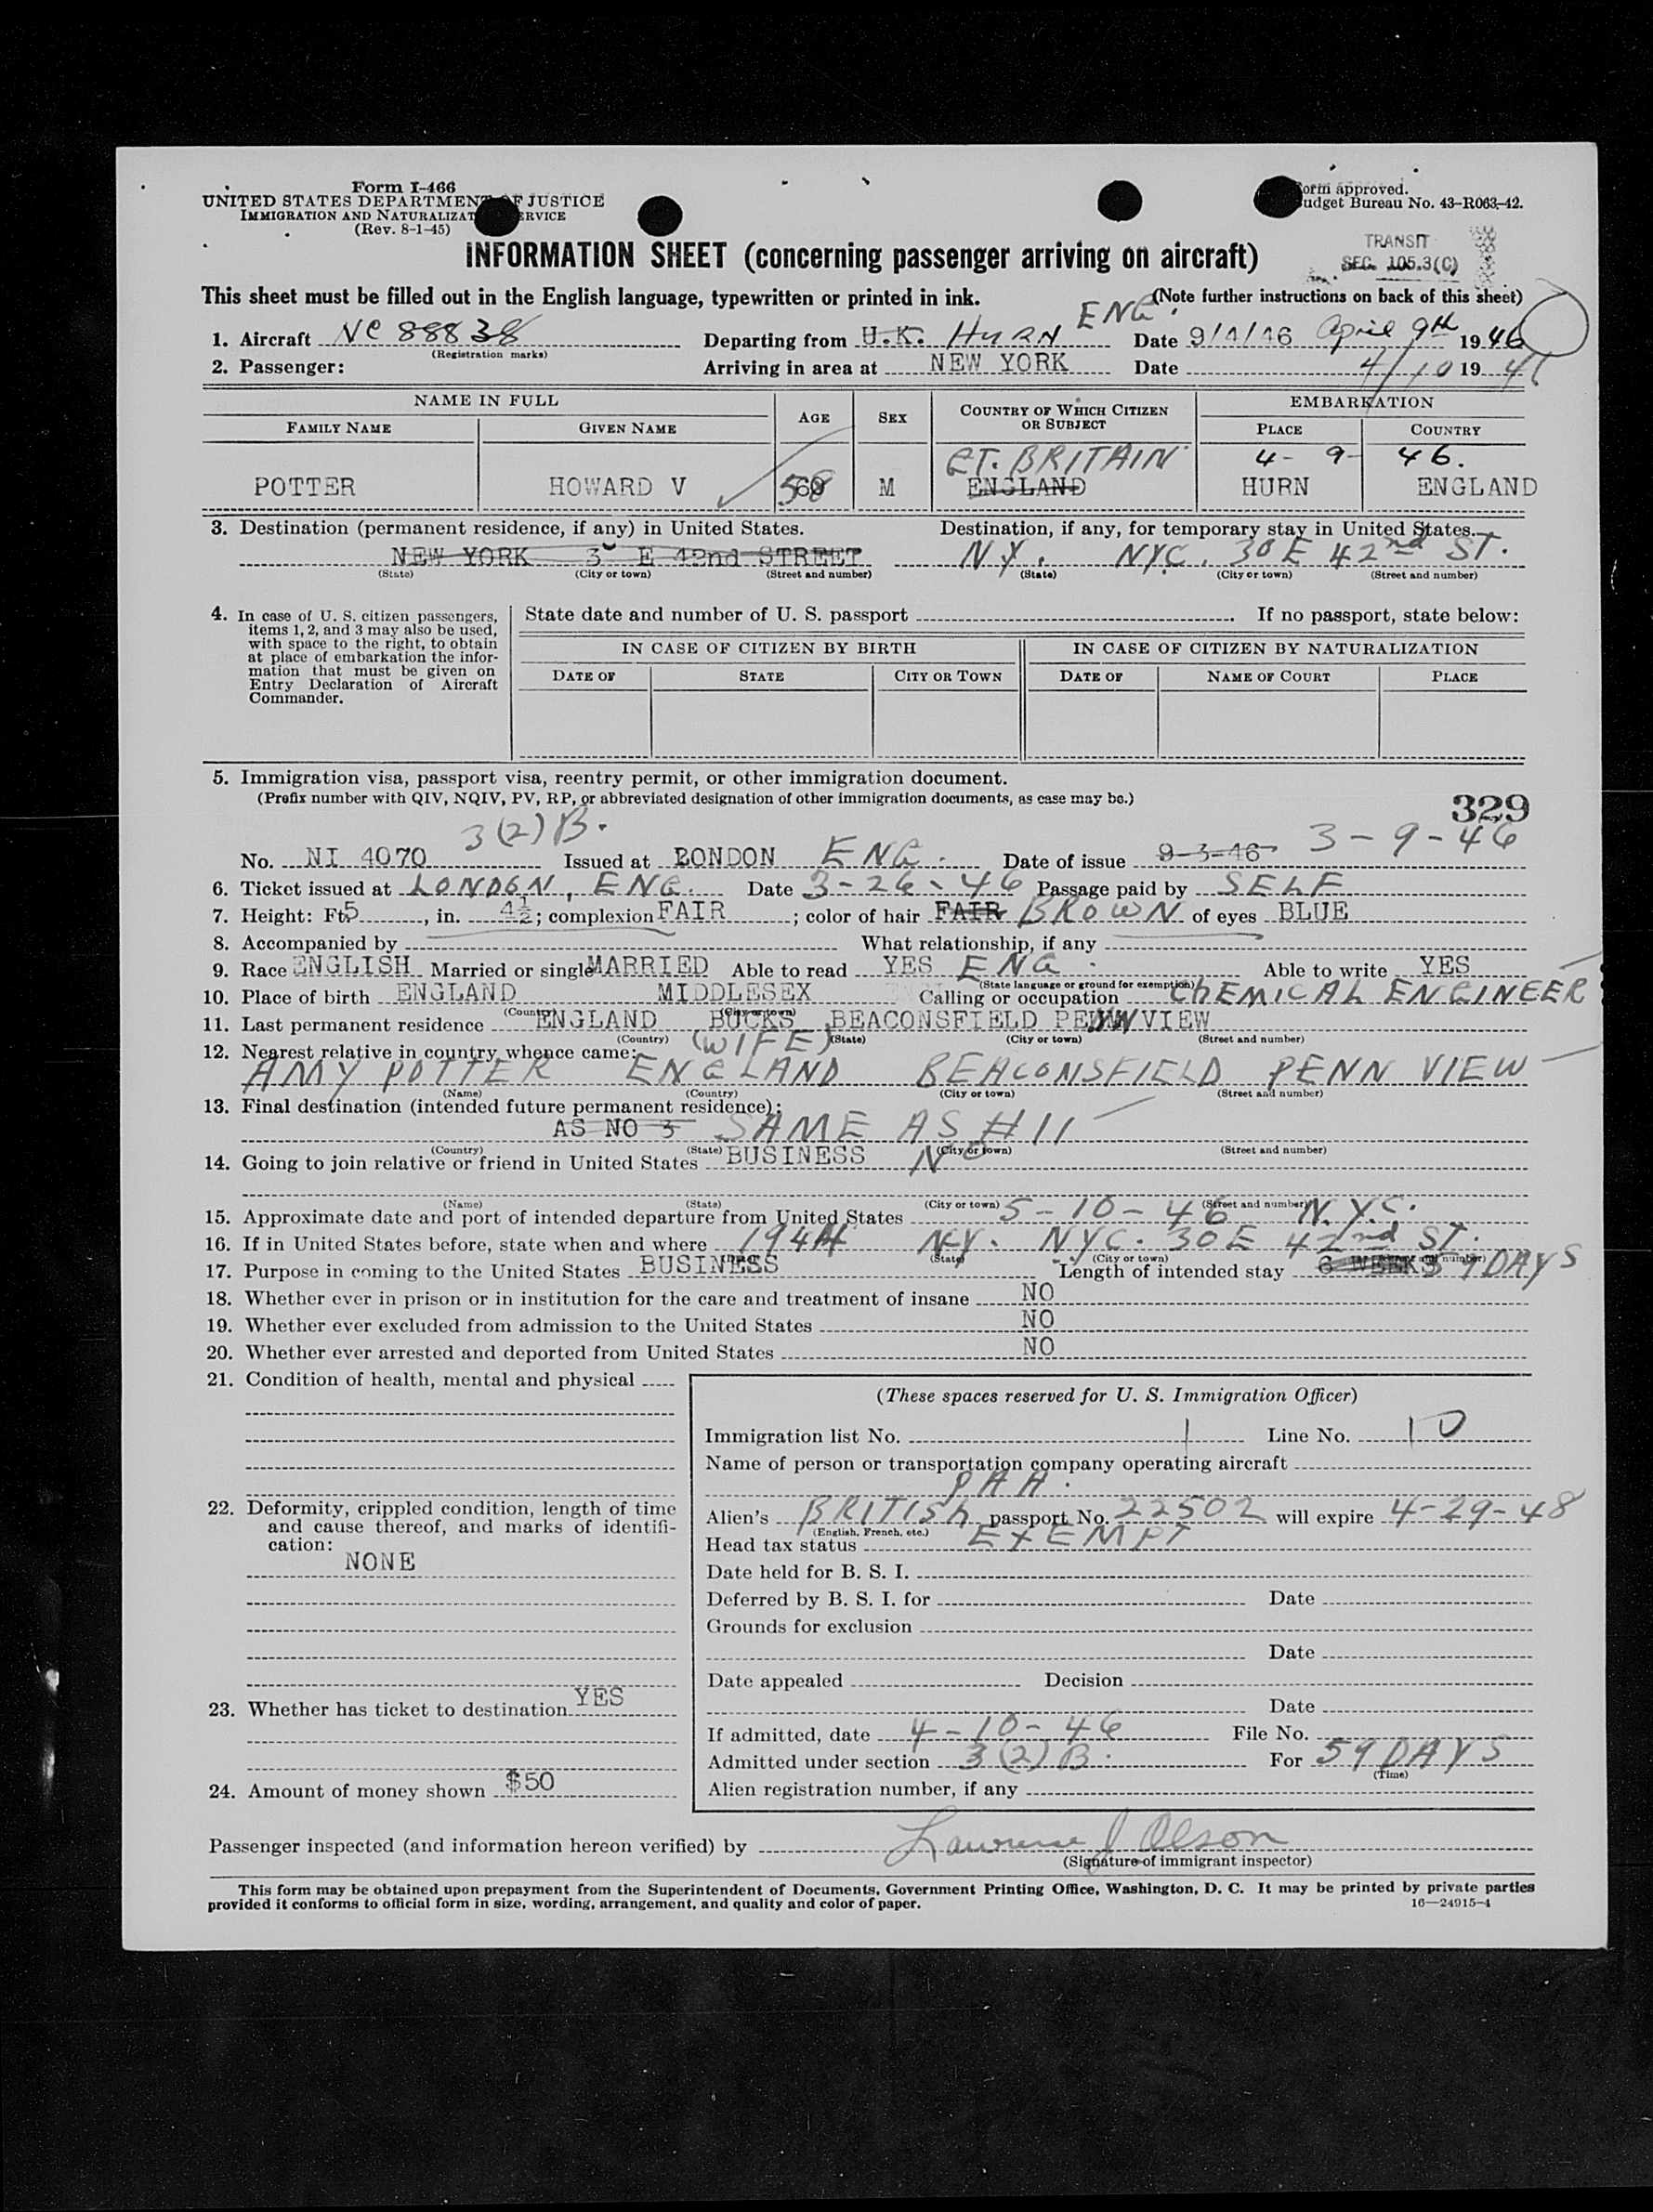 Form I-466
UNITED STATES DEPARTMENT OF JUSTICE
IMMIGRATION AND NATURALIZATION SERVICE
(Rev. 8-1-45)
Form approved.
Budget Bureau No. 43-R063-42.
INFORMATION SHEET (concerning passenger arriving on aircraft)
TRANSIT
SEC. 105.3(C)
This sheet must be filled out in the English language, typewritten or printed in ink. (Note further instructions on back of this sheet)
1. Aircraft NC 88838 Departing from U.K. HURN ENG. Date 9/4/46 April 9th 1946
(Registration marks)
2. Passenger: Arriving in area at NEW YORK Date 4/10 1946
NAME IN FULL AGE SEX COUNTRY OF WHICH CITIZEN OR SUBJECT EMBARKATION
FAMILY NAME GIVEN NAME PLACE COUNTRY
GT. BRITAIN 4- 9- 46.
POTTER HOWARD V 58 M ENGLAND HURN ENGLAND
3. Destination (permanent residence, if any) in United States. Destination, if any, for temporary stay in United States.
NEW YORK 3 E 42nd STREET N.Y. NYC. 30 E 42nd ST.
(State) (City or town) (Street and number) (State) (City or town) (Street and number)
4. In case of U. S. citizen passengers, items 1, 2, and 3 may also be used, with space to the right, to obtain at place of embarkation the information that must be given on Entry Declaration of Aircraft Commander.
State date and number of U. S. passport If no passport, state below:
IN CASE OF CITIZEN BY BIRTH IN CASE OF CITIZEN BY NATURALIZATION
DATE OF STATE CITY OR TOWN DATE OF NAME OF COURT PLACE
5. Immigration visa, passport visa, reentry permit, or other immigration document.
(Prefix number with QIV, NQIV, PV, RP, or abbreviated designation of other immigration documents, as case may be.)
329
3(2)B.
No. NI 4070 Issued at LONDON ENG. Date of issue 9-3-46 3-9-46
6. Ticket issued at LONDON, ENG. Date 3-26-46 Passage paid by SELF
7. Height: Ft. 5, in. 4½; complexion FAIR; color of hair FAIR BROWN of eyes BLUE
8. Accompanied by What relationship, if any
9. Race ENGLISH Married or single MARRIED Able to read YES ENG. Able to write YES
(State language or ground for exemption)
10. Place of birth ENGLAND MIDDLESEX Calling or occupation CHEMICAL ENGINEER
(Country) (City or town)
11. Last permanent residence ENGLAND BUCKS BEACONSFIELD PENN VIEW
(Country) (State) (City or town) (Street and number)
12. Nearest relative in country whence came: (WIFE)
AMY POTTER ENGLAND BEACONSFIELD PENN VIEW
(Name) (Country) (City or town) (Street and number)
13. Final destination (intended future permanent residence):
AS NO 3 SAME AS #11
(Country) (State) (City or town) (Street and number)
14. Going to join relative or friend in United States BUSINESS NO
(Name) (State) (City or town) (Street and number)
15. Approximate date and port of intended departure from United States 5-10-46 N.Y.C.
16. If in United States before, state when and where 1944 NY. NYC. 30 E 42nd ST.
(State) (City or town) (Street and number)
17. Purpose in coming to the United States BUSINESS Length of intended stay 6 WEEKS 59 DAYS
18. Whether ever in prison or in institution for the care and treatment of insane NO
19. Whether ever excluded from admission to the United States NO
20. Whether ever arrested and deported from United States NO
21. Condition of health, mental and physical
22. Deformity, crippled condition, length of time and cause thereof, and marks of identification:
NONE
23. Whether has ticket to destination YES
24. Amount of money shown $50
(These spaces reserved for U. S. Immigration Officer)
Immigration list No. 1 Line No. 10
Name of person or transportation company operating aircraft
PAA.
Alien's BRITISH passport No. 22502 will expire 4-29-48
(English, French, etc.)
Head tax status EXEMPT
Date held for B. S. I.
Deferred by B. S. I. for Date
Grounds for exclusion
Date
Date appealed Decision
Date
If admitted, date 4-10-46 File No.
Admitted under section 3(2)B. For 59 DAYS
(Time)
Alien registration number, if any
Passenger inspected (and information hereon verified) by Lawrence J Olson
(Signature of immigrant inspector)
This form may be obtained upon prepayment from the Superintendent of Documents, Government Printing Office, Washington, D. C. It may be printed by private parties
provided it conforms to official form in size, wording, arrangement, and quality and color of paper. 16—24915-4